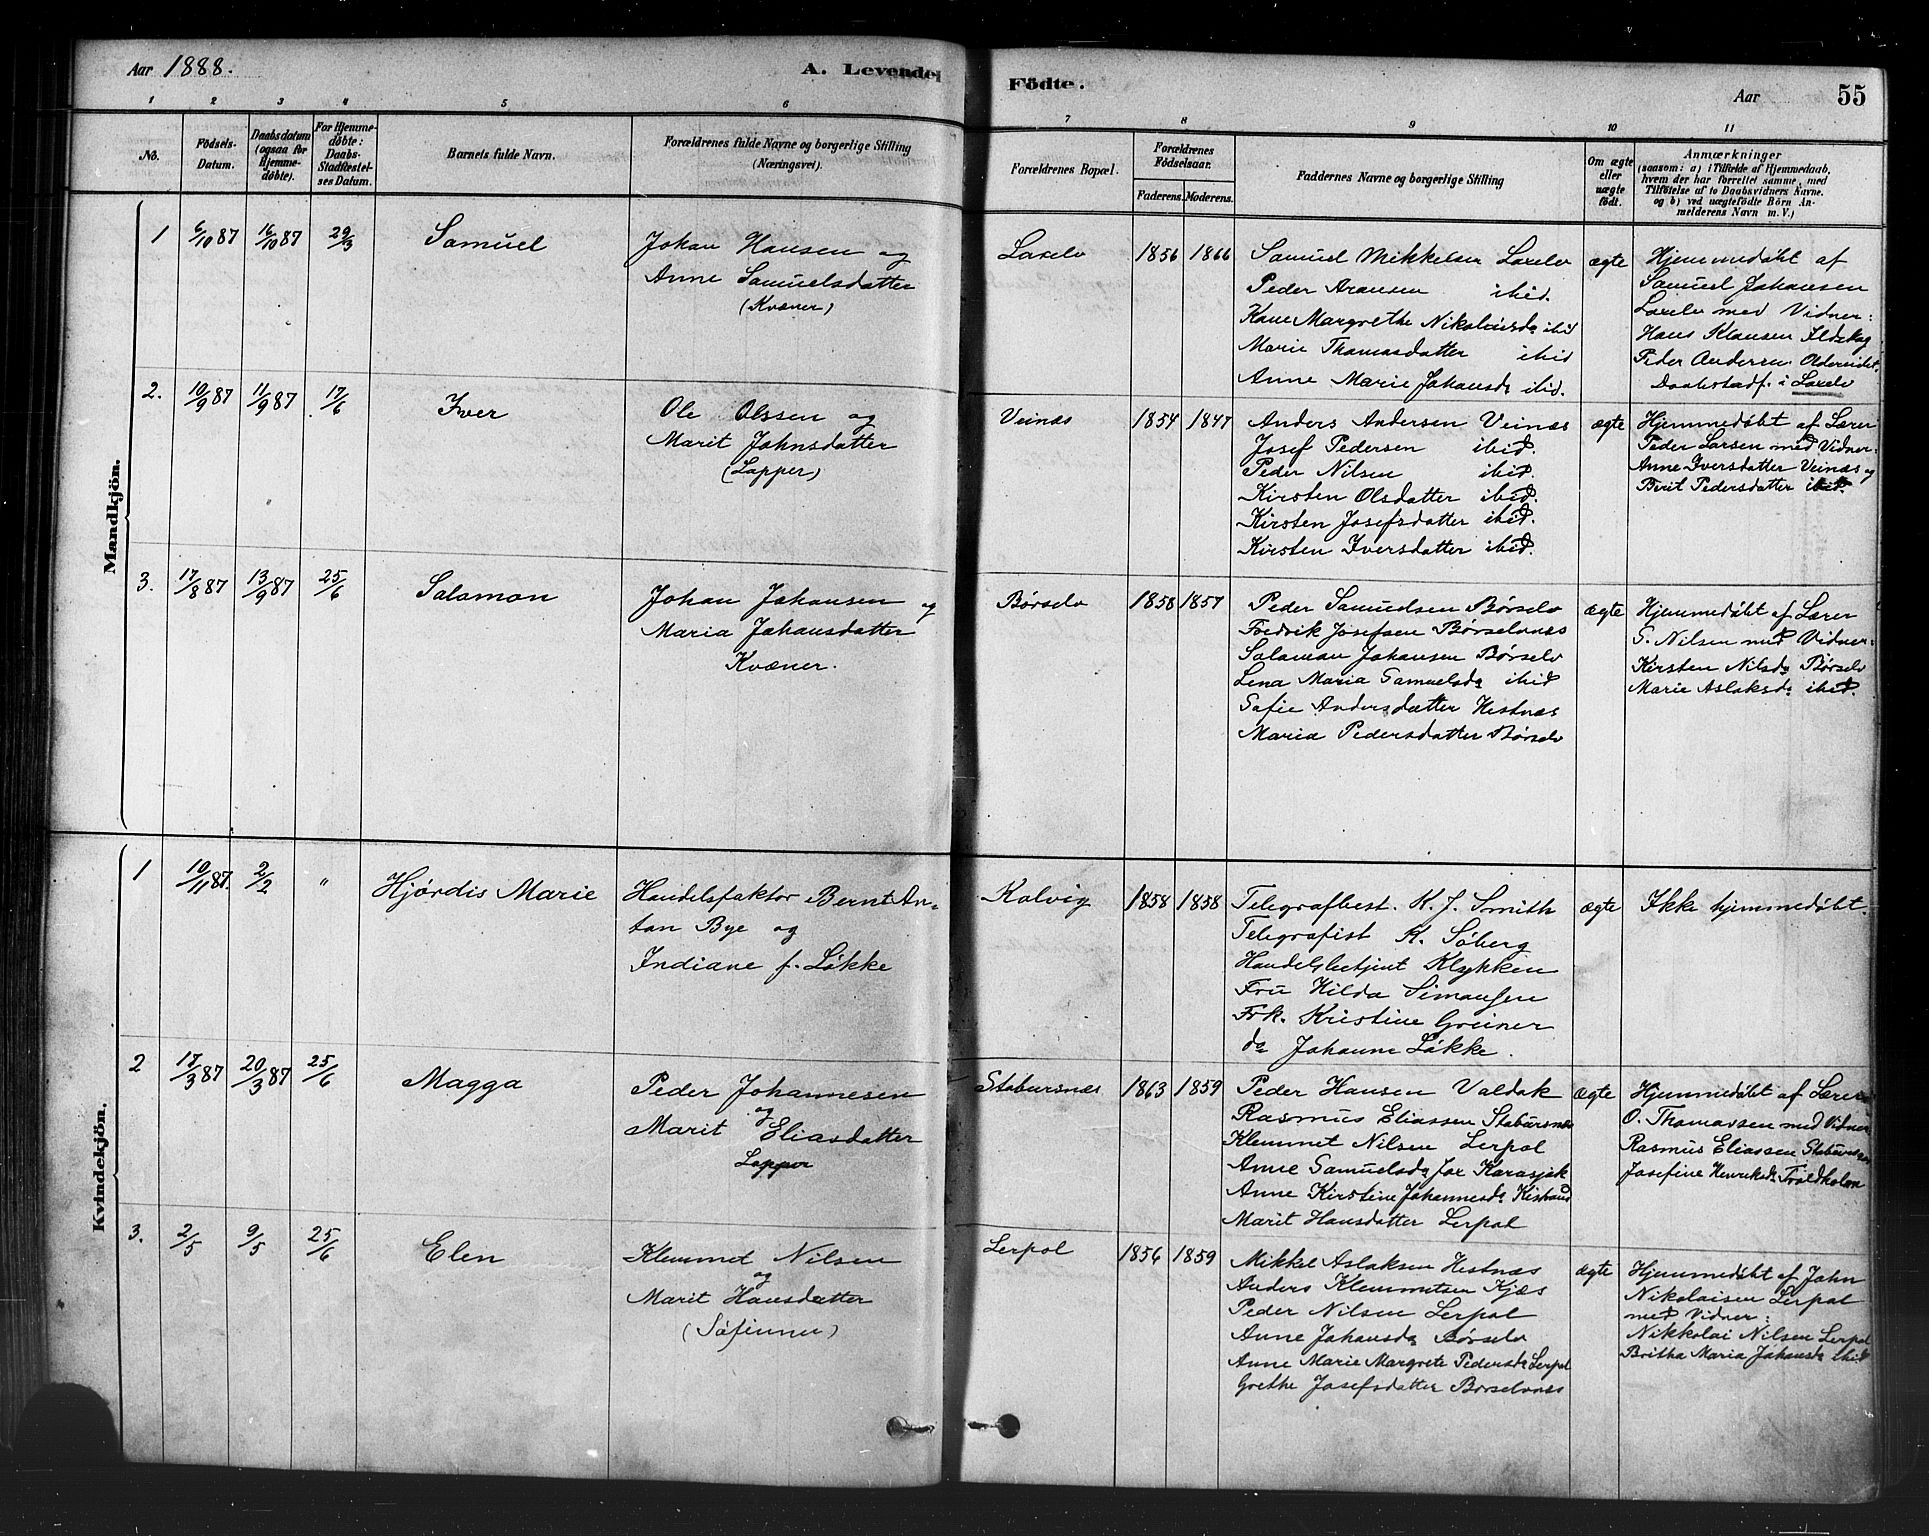 Aar 1888. A. Levende Födte. Aar 55
1 2 3 4 5 6 7 8 9 10 11
No.
Födsels-Datum.
Daabsdatum (ogsaa for Hjemme-döbte).
For Hjemme-döbte: Daabs-Stadfæstel-ses Datum.
Barnets fulde Navn.
Forældrenes fulde Navne og borgerlige Stilling
(Næringsvei).
Forældrenes Bopæl.
Forældrenes Födselsaar.
Faderens. Moderens.
Faddernes Navne og borgerlige Stilling
Om ægte eller uægte födt.
Anmærkninger
(saasom: a) i Tilfælde af Hjemmedaab,
hvem der har forrettet samme, med
Tilföielse af to Daabsvidners Navne.
og b) ved uægtefödte Börn An-
melderens Navn m. V.)
Mandkjön.
1 6/10 87 16/10 87 29/3 Samuel
Johan Hansen og
Anne Samuelsdatter
(Kvæner)
Laxelv 1856 1866
Samuel Mikkelsen Laxelv
Peder Aronsen ibid.
Kane Margrethe Nikolaisda ibid
Marie Thomasdatter ibid
Anne Marie Johansda ibid.
ægte
Hjemmedøbt af
Samuel Johansen
Laxelv med Vidner:
Hans Klausen Ildskog
Peder Andersen Oldereidet.
Daabsstadf. i Laxelv
2. 10/9 87 11/9 87 17/6 Iver
Ole Olssen og
Marit Johnsdatter
(Lapper)
Veinæs 1854 1847
Anders Andersen Veinæs
Josef Pedersen ibid.
Peder Nilsen ibid.
Kirsten Olsdatter ibid.
Kirsten Josefsdatter ibid.
Kirsten Iversdatter ibid.
ægte
Hjemmedøbt af Lærer
Peder Larsen med Vidner:
Anne Iversdatter Veinæs og
Berit Pedersdatter ibid.
3. 17/8 87 13/9 87 25/6 Salamon
Johan Johansen og
Maria Johansdatter
Kvæner.
Børselv 1858 1857
Peder Samuelsen Børselv
Fredrik Josefsen Børselvnæs
Salamon Johansen Børselv
Lena Maria Samuelsda ibid
Safie Andersdatter Hestnæs
Maria Pedersdatter Børselv
ægte
Hjemmedøbt af Lærer
S. Nilsen med Vidner:
Kirsten Nilsda Børselv
Marie Aslaksda ibid.
Kvindekjön.
1 10/11 87. 2/2 " Hjørdis Marie
Handelsfaktor Bernt An-
ton Bye og
Indiane f. Løkke
Kolvig 1858 1858
Telegrafbest. K. J. Smith
Telegrafist K. Søberg
Handelsbetjent Klykken
Fru Hilda Simonsen
Frk. Kristine Greiner
do Johanne Løkke.
ægte
Ikke hjemmedøbt.
2 17/3 87 20/3 87 25/6 Magga
Peder Johannesen
og
Marit Eliasdatter
Lapper
Stabursnæs 1863 1859
Peder Hansen Valdak
Rasmus Eliassen Stabursnæs
Klemmet Nilsen Lerpol
Anne Samuelsda Jox Karasjok
Anne Kirstine Johannesda Kistrand
Marit Hansdatter Lerpol
ægte
Hjemmedøbt af Lærer
O. Thomassen med Vidner
Rasmus Eliassen Stabursnæs
Josefine Henriksda Troldholm
3. 2/5 9/5 25/6 Elen
Klemmet Nilsen
og
Marit Hansdatter
(Søfinner)
Lerpol 1856 1859
Mikkel Aslaksen Hestnæs
Anders Klemmetsen Kjæs
Peder Nilsen Lerpol
Anne Johansda Børselv
Anne Marie Margrete Pedersda Lerpol
Grethe Josefsdatter Børselvnes
ægte
Hjemmedøbt af John
Nikolaisen Lerpol
med Vidner:
Nikkolai Nilsen Lerpol
Britha Maria Johansda ibid